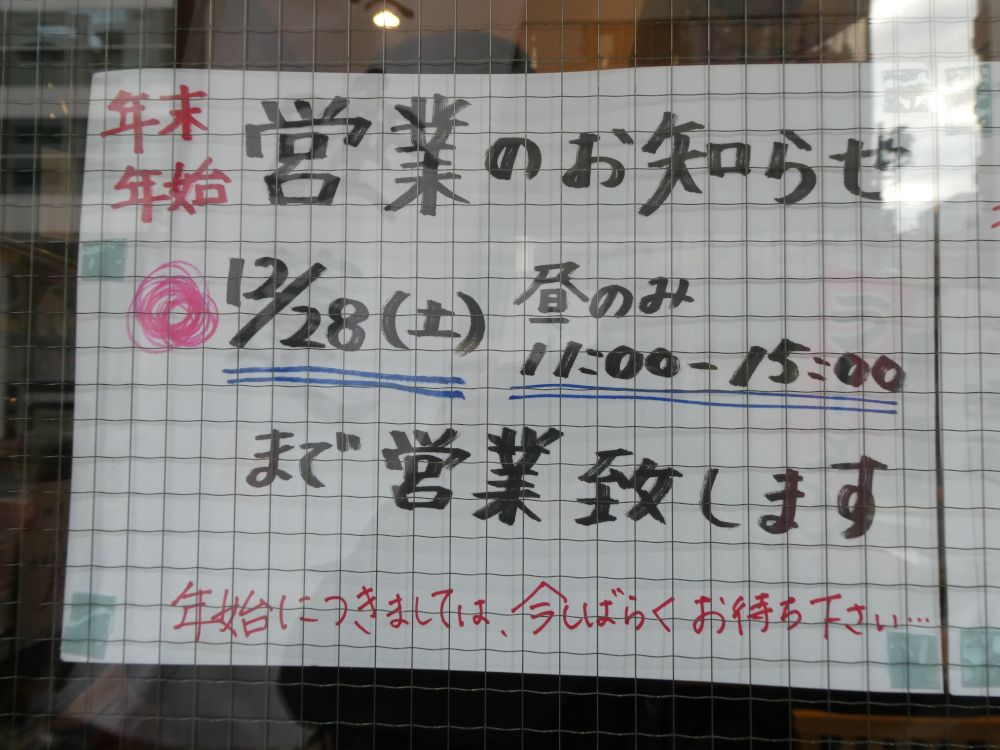 年末
年始
営業のお知らせ
12/28(土) 昼のみ
11:00-15:00
まで営業致します
年始につきましては、今しばらくお待ち下さい…